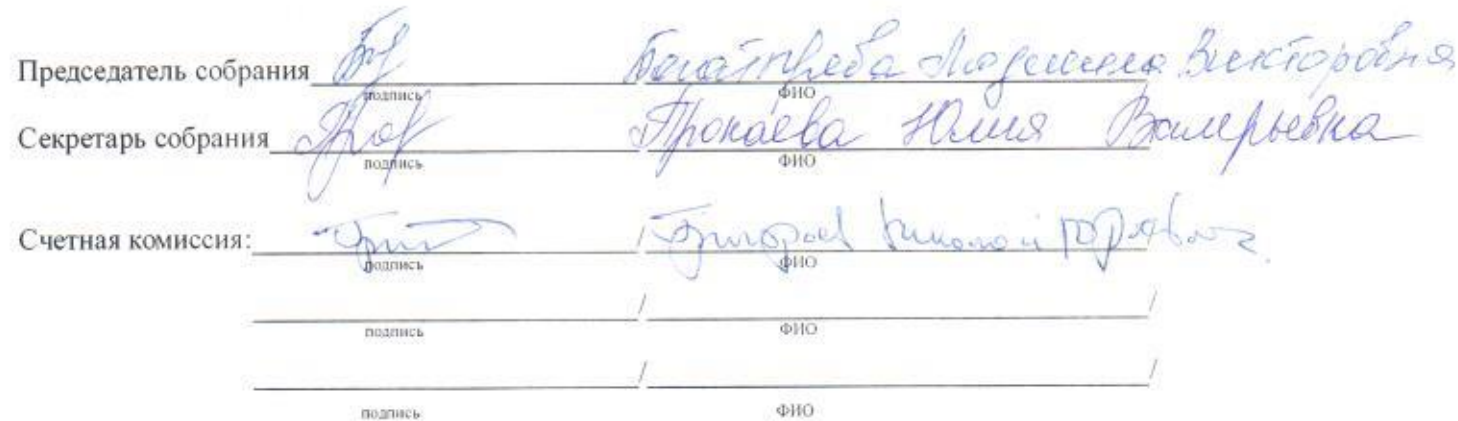 Председатель собрания / Богатырева Людмила Викторовна
подпись ФИО
Секретарь собрания / Прокаева Юлия Валерьевна
подпись ФИО
Счетная комиссия: / Григорьев Николай Юрьевич
подпись ФИО
/ /
подпись ФИО
/ /
подпись ФИО